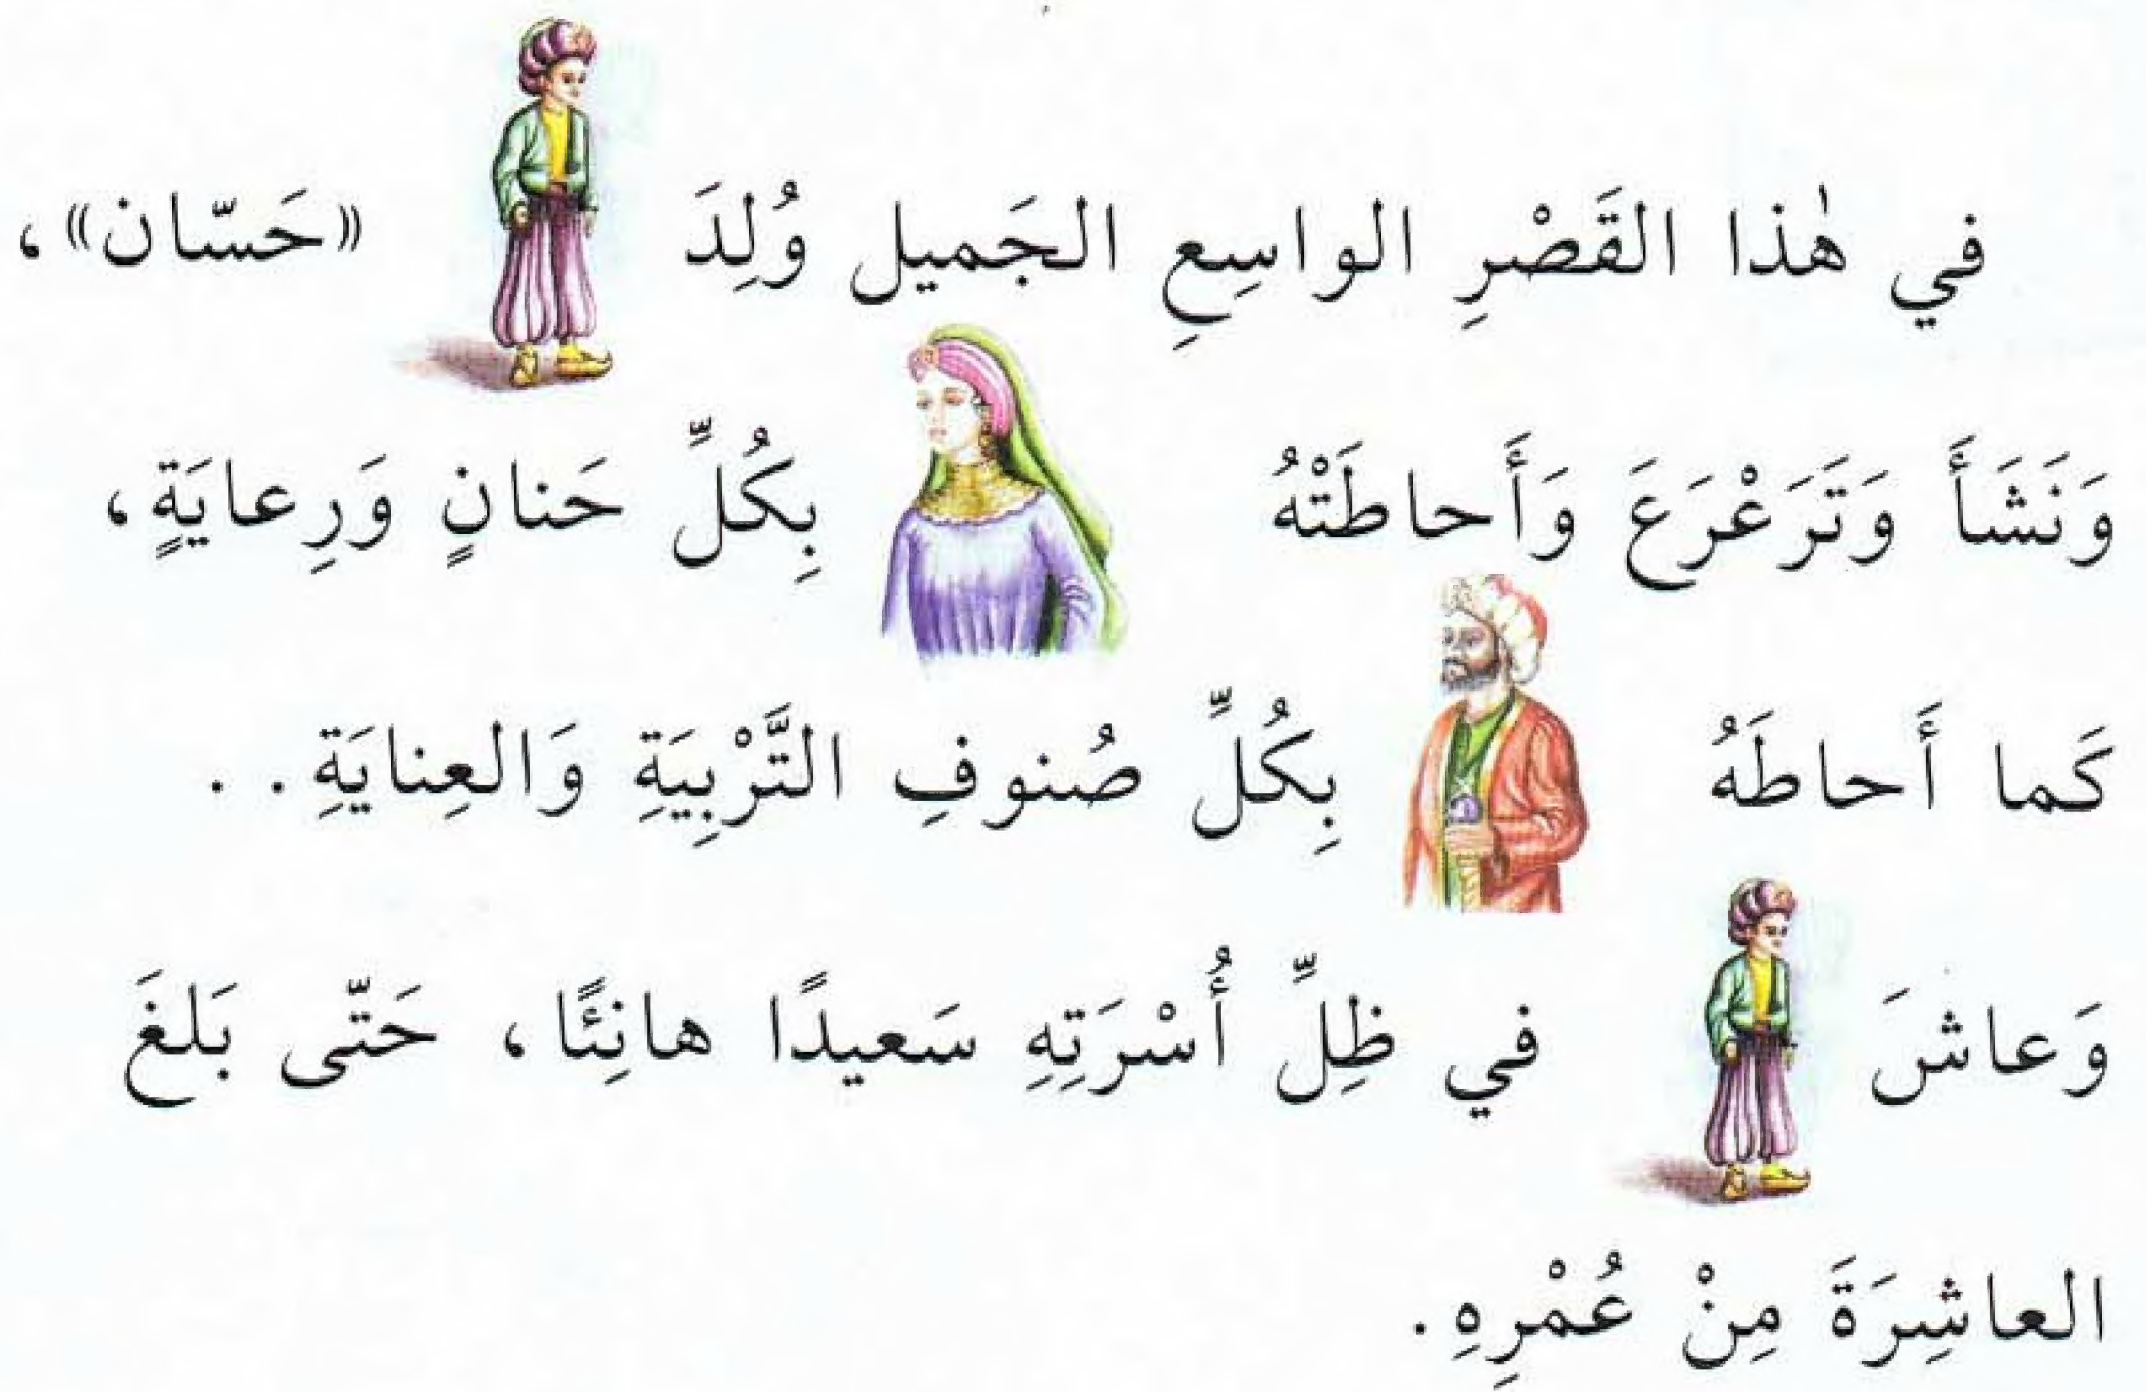 في هٰذا القَصْرِ الواسِعِ الجَميل وُلِدَ «حَسّان»،
وَنَشَأَ وَتَرَعْرَعَ وَأَحاطَتْهُ بِكُلِّ حَنانٍ وَرِعايَةٍ،
كَما أَحاطَهُ بِكُلِّ صُنوفِ التَّرْبِيَةِ وَالعِنايَةِ . .
وَعاشَ في ظِلِّ أُسْرَتِهِ سَعيدًا هانِئًا، حَتّى بَلَغَ
العاشِرَةَ مِنْ عُمْرِهِ.